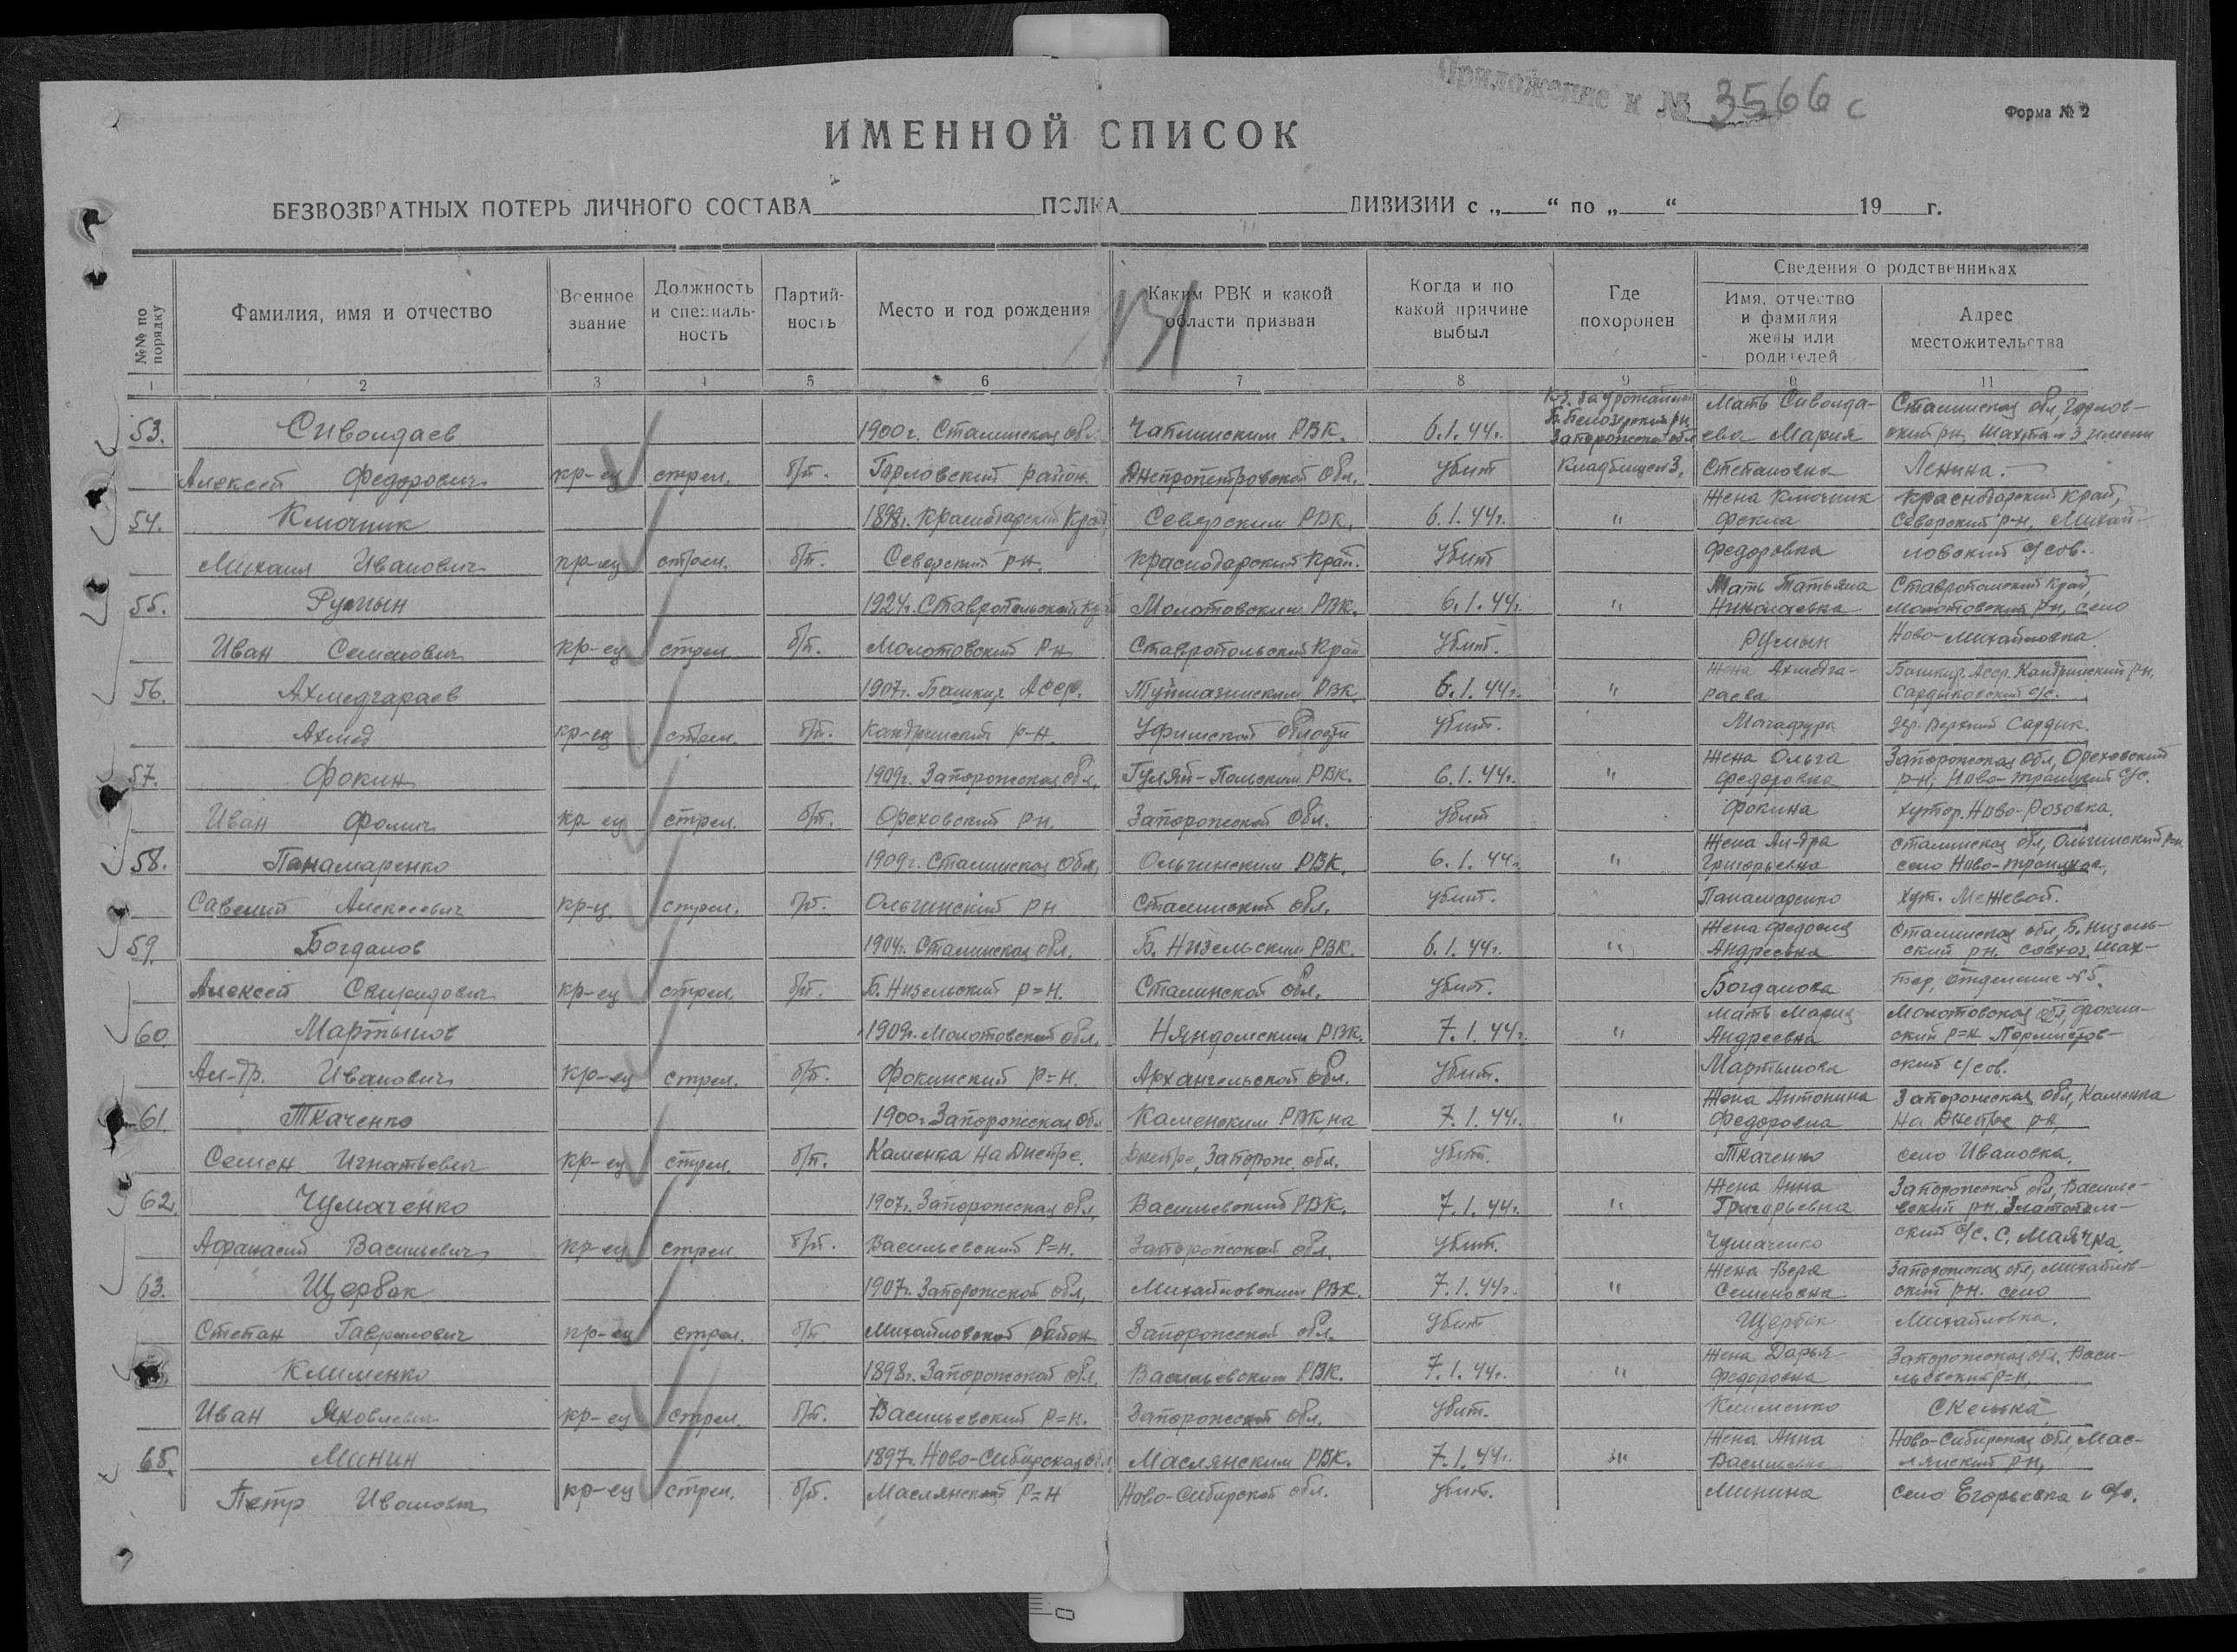 Приложение к № 3566 с
Форма № 2
ИМЕННОЙ СПИСОК
БЕЗВОЗВРАТНЫХ ПОТЕРЬ ЛИЧНОГО СОСТАВА ПОЛКА ДИВИЗИИ с „ “ по „ “ 19 г.
№№ по порядку
Фамилия, имя и отчество
Военное звание
Должность и специальность
Партийность
Место и год рождения
Каким РВК и какой области призван
Когда и по какой причине выбыл
Где похоронен
Сведения о родственниках
Имя, отчество и фамилия жены или родителей
Адрес местожительства
1 2 3 4 5 6 7 8 9 0 11
53. Сиволдаев 1900г. Сталинская обл. Чаплинским РВК. 6.1.44г. Б. Белозерский рн Запорожской обл Мать Сиволдаева Мария Сталинская обл, Горловский рн, Шахта № 3 имени
Алексей Федорович кр-ец стрел. б/п. Горловский район. Днепропетровской обл. убит Кладбище № 3, Степановна Ленина.
54. Ключник 1898г. Краснодарский Край Северским РВК. 6.1.44г. " Жена Ключник Фекла Краснодарский Край, Северский р-н, Михай-
Михаил Иванович кр-ец стрел. б/п. Северский рн. Краснодарский Край. убит Федоровна ловский с/сов.
55. Румын 1924г. Ставропольский Край Молотовским РВК. 6.1.44г. " Мать Татьяна Николаевна Ставропольский Край, Молотовский рн, село
Иван Семенович кр-ец стрел б/п. Молотовский рн Ставропольский Край убит. Румын Ново-Михайловка
56. Ахмедгараев 1907г. Башкир. Асср. Туймазинским РВК 6.1.44г. " Жена Ахмедгараева Башкир. Асср. Кандринский р-н, Сардыковский с/с.
Ахмед кр-ец стрел. б/п. Кандринский р-н. Уфимской области убит. дер. Верхний Сардык.
57. Фокин 1909г. Запорожская обл, Гуляй-Польским РВК. 6.1.44г. " Жена Ольга Федоровна Запорожская обл, Ореховский р-н, Ново-Троицкий с/с.
Иван Фомич кр-ец стрел. б/п. Ореховский рн. Запорожской обл. убит Фокина хутор. Ново-Розовка.
58. Панамаренко 1909г. Сталинская обл, Ольгинским РВК. 6.1.44г. " Жена Ал-дра Григорьевна Сталинская обл, Ольгинский р-н село Ново-Троицкое,
Савелий Алексеевич кр-ц. стрел. б/п. Ольгинский рн Сталинской обл. убит. Панамаренко хут. Межевой.
59. Богданов 1904г. Сталинская обл, Б. Низельским РВК. 6.1.44г. " Жена Федосия Андреевна Сталинская обл, Б. Низельский рн. совхоз Шах-
Алексей Свиридович кр-ец стрел. б/п. Б. Низельский р=н. Сталинской обл. убит. Богданова тер, отделение № 5.
60. Мартынов 1909г. Молотовской обл, Няндомским РВК. 7.1.44г. " Мать Мария Андреевна Молотовская обл, Фокинский р=н
Ал-др. Иванович кр-ец стрел. б/п. Фокинский р=н. Архангельской обл. убит. Мартынова ский с/сов.
61. Ткаченко 1900г. Запорожская обл Каменским РВК, на 7.1.44г. " Жена Антонина Федоровна Запорожская обл, Каменка на Днепре рн,
Семен Игнатьевич кр-ец стрел. б/п. Каменка на Днепре. Днепре, Запорож. обл. убит. Ткаченко село Ивановка.
62. Чумаченко 1907г. Запорожская обл, Васильевский РВК. 7.1.44г. " Жена Анна Григорьевна Запорожской обл, Васильевский рн. Златополь-
Афанасий Васильевич кр-ец стрел б/п. Васильевский р=н. Запорожской обл. убит. Чумаченко ский с/с. с. Маячка.
63. Щербак 1907г. Запорожской обл, Михайловским РВК. 7.1.44г. " Жена Вера Семеновна Запорожская обл, Михайловский рн. село
Степан Гаврилович кр-ец стрел. б/п Михайловский район Запорожской обл. убит Щербак Михайловка.
Клименко 1898г. Запорожской обл, Васильевским РВК. 7.1.44г. " Жена Дарья Федоровна Запорожская обл. Васильевский р=н,
Иван Яковлевич кр-ец стрел. б/п. Васильевский р=н. Запорожской обл. убит. Клименко Скелька
65. Минин 1897г. Ново-Сибирская обл Маслянским РВК. 7.1.44г. " Жена Анна Васильевна Ново-Сибирская обл, Маслянский рн,
Петр Иванович кр-ец стрел. б/п. Маслянский р=н Ново-Сибирской обл. убит. Минина село Егорьевка и с/с.